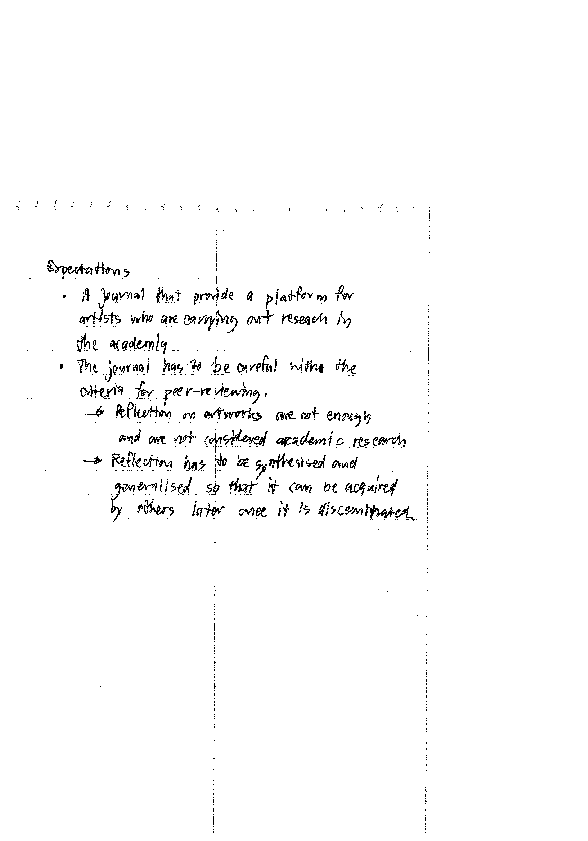 Expectations
• A journal that provide a platform for
artists who are carrying out reseach in
the academy
• The journal has to be careful withe the
criteria for peer-reviewing.
→ Reflection on artworks are not enough
and are not considered academic research
→ Reflection has to be synthesised and
generalised so that it can be acquired
by others later once it is disseminated